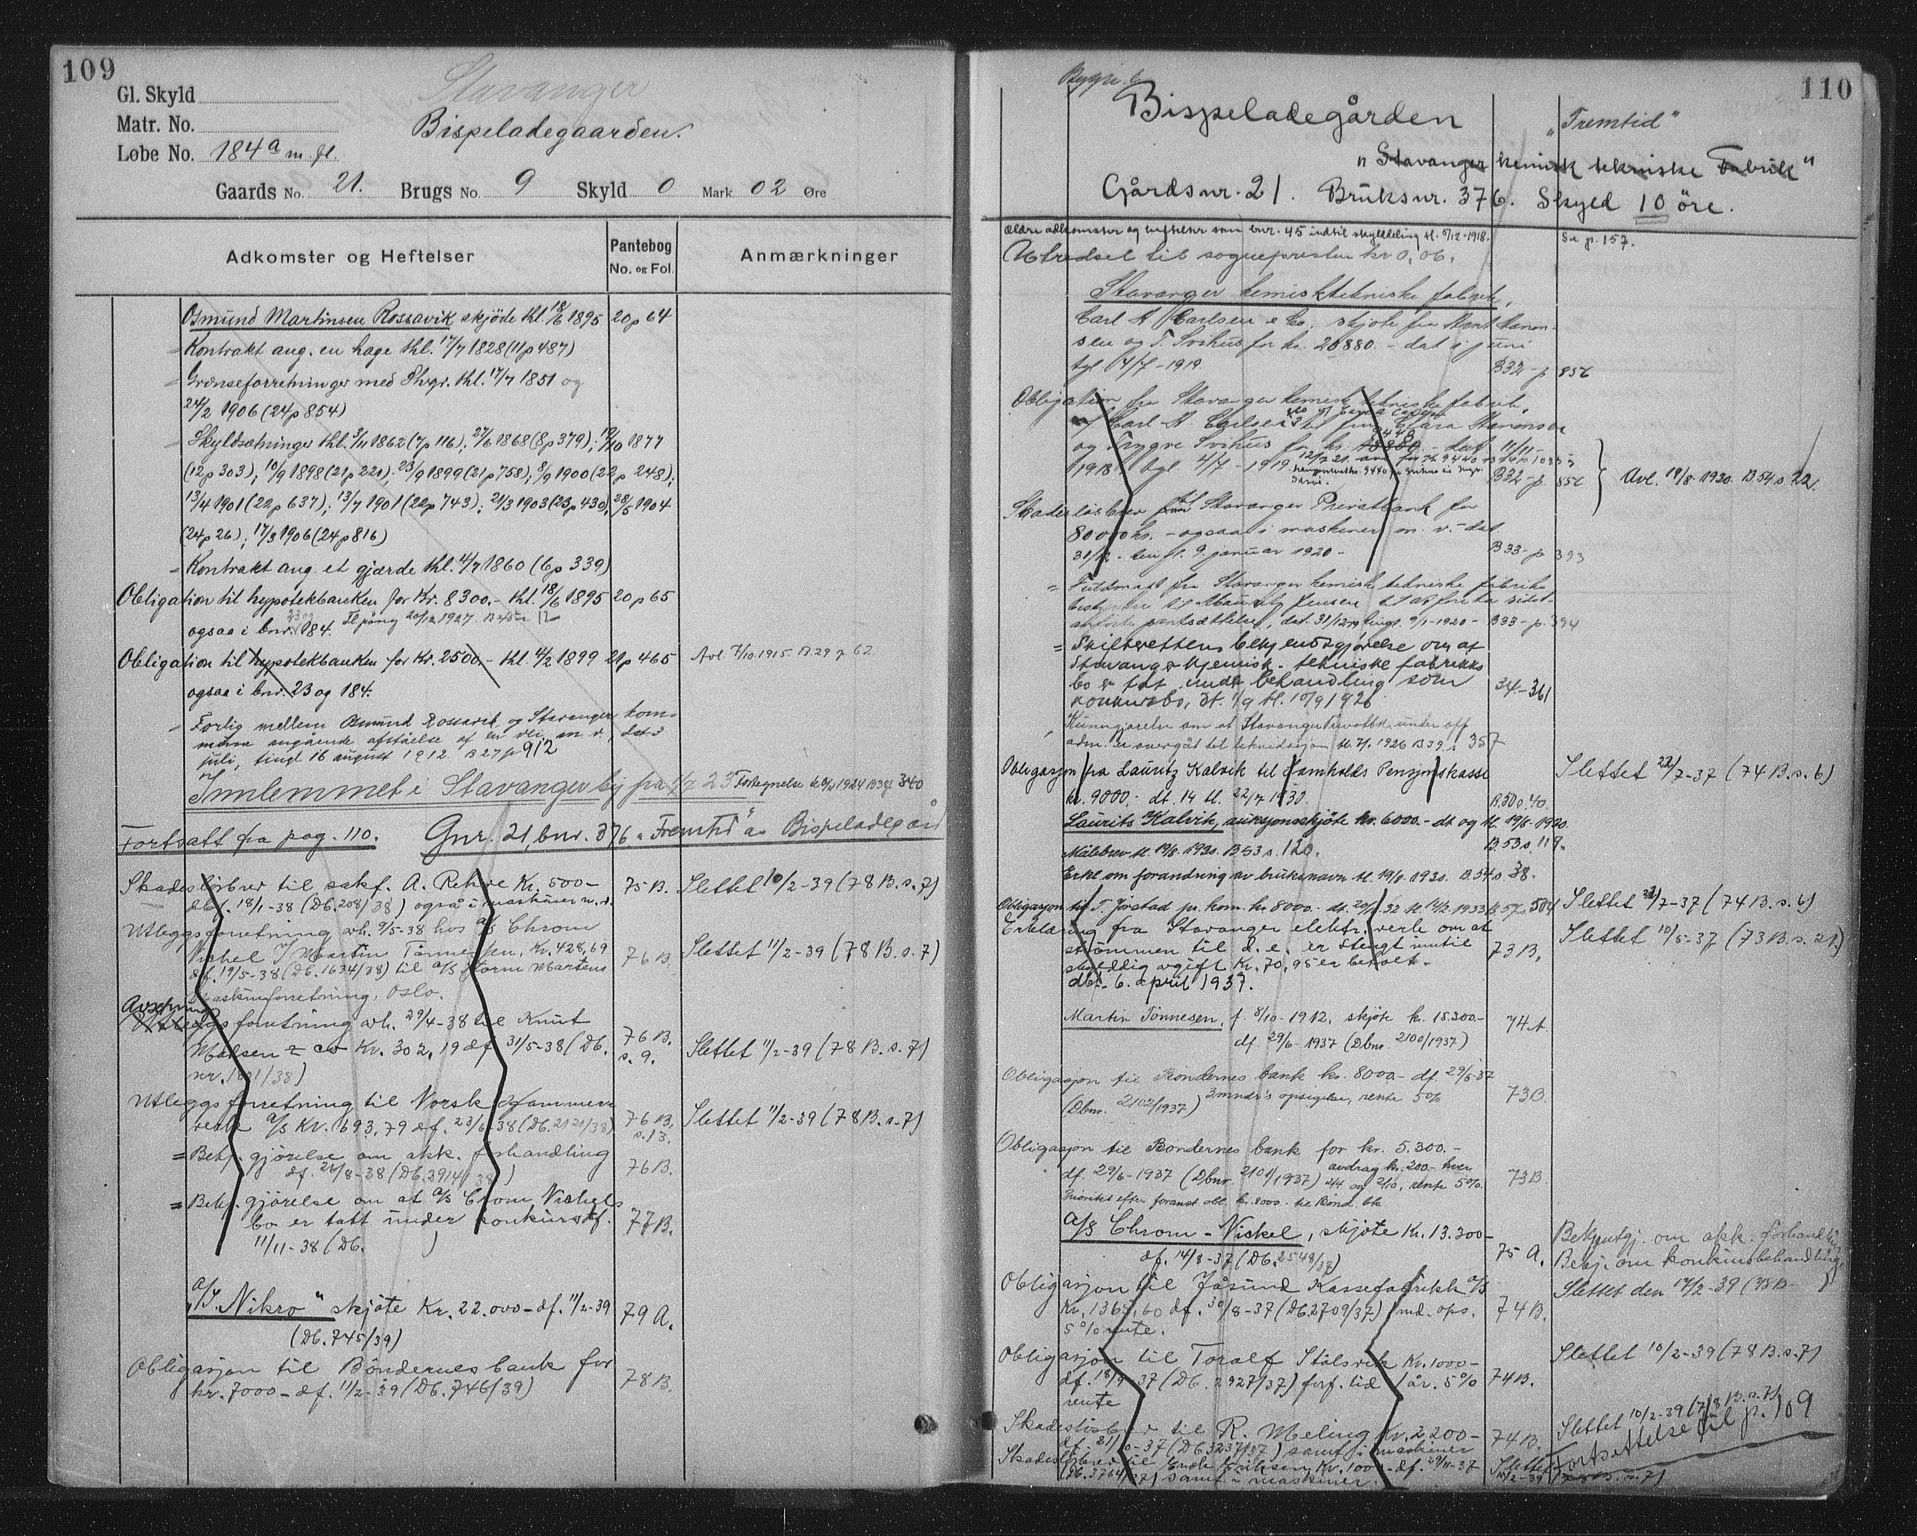 109
Stavanger
Gl. Skyld
Bispeladegaarden.
Matr. No.
Løbe No. 184a m. fl.
Gaards No. 21. Brugs No. 9 Skyld 0 Mark 02 Øre
Adkomster og Heftelser
Pantebog No. og Fol.
Anmærkninger
Osmund Martinsen Rossavik skjöde thl. 18/6 1895 20p 64
Kontrakt ang. en hage thl. 17/7 1828 (11p 487)
Grænseforretninger med Stvgr. thl. 17/7 1851 og
24/2 1906 (24p 854)
Skyldsætninger thl. 3/11 1862 (7p 116); 27/6 1868 (8p 379); 19/10 1877
(12p 303); 10/9 1898 (21p 220); 23/9 1899 (21p 758); 8/9 1900 (22p 248);
13/4 1901 (22p 637); 13/7 1901 (22p 743); 21/3 1903 (23p 430); 28/5 1904
(24p 26); 17/3 1906 (24p 816)
Kontrakt ang. et gjærde thl. 4/7 1860 (6p 339)
Obligation til hypotekbanken for Kr. 8300.- thl. 18/6 1895 20p 65
ogsaa i bnr. 23 og 184.
Obligation til hypotekbanken for Kr. 2500.- thl. 4/2 1899 21p 465 Avl. 7/10 1915. B 29 p 62.
ogsaa i bnr. 23 og 184.
Forlig mellem Osmund Rossavik og Stavanger kom-
mune angående afståelse af en vei m. v., dat. 3
juli, tingl 16 august 1912 B 27 p 912
Innlemmet i Stavanger by fra 1/7 23
Fortsatt fra pag. 110. Gnr. 21, bnr. 376 "Fremtid" av Bispeladegård
Skadeslösbrev til sakf. A. Rehve Kr. 500- 75 B. Slettet 10/2-39 (78 B. s. 7)
dbf. 18/1-38 (Db. 208/38) også i maskiner m. v.
Utleggsforretning avh. 9/5-38 hos A/S Chrom
Nickel v/ Martin Tönnessen, Kr. 428,69 76 B Slettet 11/2-39 (78 B. s. 7)
df. 19/5-38 (Db. 1634/38) til A/S Storm Martens
Maskinforretning, Oslo.
Utleggsforretning avh. 29/4-38 til Knut
Madsen & co Kr. 302,19 df. 31/5-38 (Db. 76 B. s. 9. Slettet 11/2-39 (78 B. s. 7)
Utleggsforretning til Norsk Hammerverk
A/S Kr. 693,79 df. 23/6-38 (Db. 2121/38) 76 B. s. 13. Slettet 11/2-39 (78 B. s. 7)
= Bekj. gjörelse om akk. forhandling
df. 24/8-38 (Db. 3914/38) 76 B.
= Bekj. gjörelse om at A/S Chrom Nickels
bo er tatt under konkurs df. 77 B.
11/11-38 (Db. )
A/S "Nikro" skjöte Kr. 22.000- df. 11/2-39 79 A.
(Db. 745/39)
Obligasjon til Bøndernes bank for
kr. 7000- df. 11/2-39 (Db. 746/39) 78 B.
110
Bispeladegården
"Fremtid"
"Stavanger kemisk tekniske Fabrik"
Gårdsnr. 21. Bruksnr. 376. Skyld 10 öre.
Ældre adkomster og heftelser som bnr. 45 indtil skylddeling tl. 5/12-1918. Se p. 157.
Utredsel til sognepresten kr 0,06.
Stavanger kemisktekniske fabrik,
Carl A Carlsen & Co. skjöte fra Arnt Aaron-
sen og T. Svihus for kr. 26880.- dat i juni
tgl 4/7-1919. B 32 - p 856
Obligation fra Stavanger kemisk tekniske fabrik,
og Trygve Svihus for kr. - dat 11/11-
1918 tgl 4/7-1919. B 32 - p. 856 Avl. 19/8-1930. B 54 s 221.
Skadeslösbrev til Stavanger Privatbank for
80000 kr. - ogsaa i maskiner m. v. - dat
31/12 - ten tl. 9. januar 1920 - B 33 - p 393
= Fuldmagt fra Stavanger kemisk tekniske fabriks
bestyrelse til Jensen til at foreta sidst-
anförte pantsættelse, dat. 31/12 19 tings. 9/1-1920 - B 33 - p. 394
= Skifterettens bekjendtgjørelse om at
Stavanger kjemisk-tekniske fabrikks
bo er tat under behandling som
konkursbo, dt. 1/9 tl. 10/9 1926 34 - 361
Kunngjørelse om at Stavanger Privatbk. under off
adm. er overgåt til likvidasjon
Obligasjon fra Lauritz Kalvik til Pensjonskasse Slettet 22/7-37 (74 B. s. 6)
kr. 9000.- dt. 14 tl. 22/7 1930. B. 50 s. 40.
Laurits Kalvik, auksjonsskjöte kr. 6000.- dt og tl. 19/8 1930. B. 53 s. 119.
Målebrev tl. 19/8. 1930. B. 53 s. 120.
Erkl. om forandring av bruksnavn tl. 19/8 1930. B. 54 s. 38.
Obligasjon til T. Jörstad pr. kom. kr 8000.- dt. 20/12 32 tl. 14/2. 1933 B. 57 s. 504 Slettet 22/7-37 (74 B. s. 6)
Erklæring fra Stavanger elektr. verk om at Slettet 10/5-37 (73 B. s. 21.)
strömmen til d. e. er stengt inntil 73 B.
skyldig avgift Kr. 70,95 er betalt.
dbf. 6. april 1937.
Martin Tönnesen, f. 8/10-1912, skjöte kr. 15.300.- 74 A.
df. 29/6-1937 (Dbnr. 2100/1937)
Obligasjon til Böndernes bank kr. 8000.- df. 29/6-37
(Dbnr. 2102/1937) 3 mndr's opsigelse, rente 5% 73 B.
Obligasjon til Böndernes bank for kr. 5.300.-
df. 29/6-1937 (Dbnr. 2101/1937) avdrag kr. 200.- hver 2/4 og 2/10, rente 5%. 73 B.
Prioritet efter foranst. obl. kr. 8000.- til Bönd. bk
A/S Chrom-Nickel, skjöte Kr. 13.300- 75 A.
df. 14/8-37 (Db. 2548/37)
Bekjentgj. om akk. forhandling
Bekj. om konkursbehandling
Obligasjon til Jåsund Kassefabrikk A/S Slettet den 17/2-39 (78 B-
Kr. 1365,60 df. 30/8-37 (Db. 2709/37) md. ops. 74 B.
5% rente.
Obligasjon til Toralf Stålsvik Kr. 1000- Slettet 10/2-39 (78 B. s. 7)
df. 18/9 37 (Db. 2927/37) forf. tid 1 år. 5% 74 B.
rente
Skadeslösbrev til R. Meling Kr. 2.200- Slettet 10/2-39 (78 B. s. 7)
df. 21/10-37 (Db. 3237/37) samt i maskiner 74 B.
Skadeslösbrev til Endre Eriksen Kr. 1000- df. 29/11-37 Slettet
(Db. 3764/37) samt i maskiner. 10/2-39 (78 B. s. 7)
Fortsettelse til p. 109